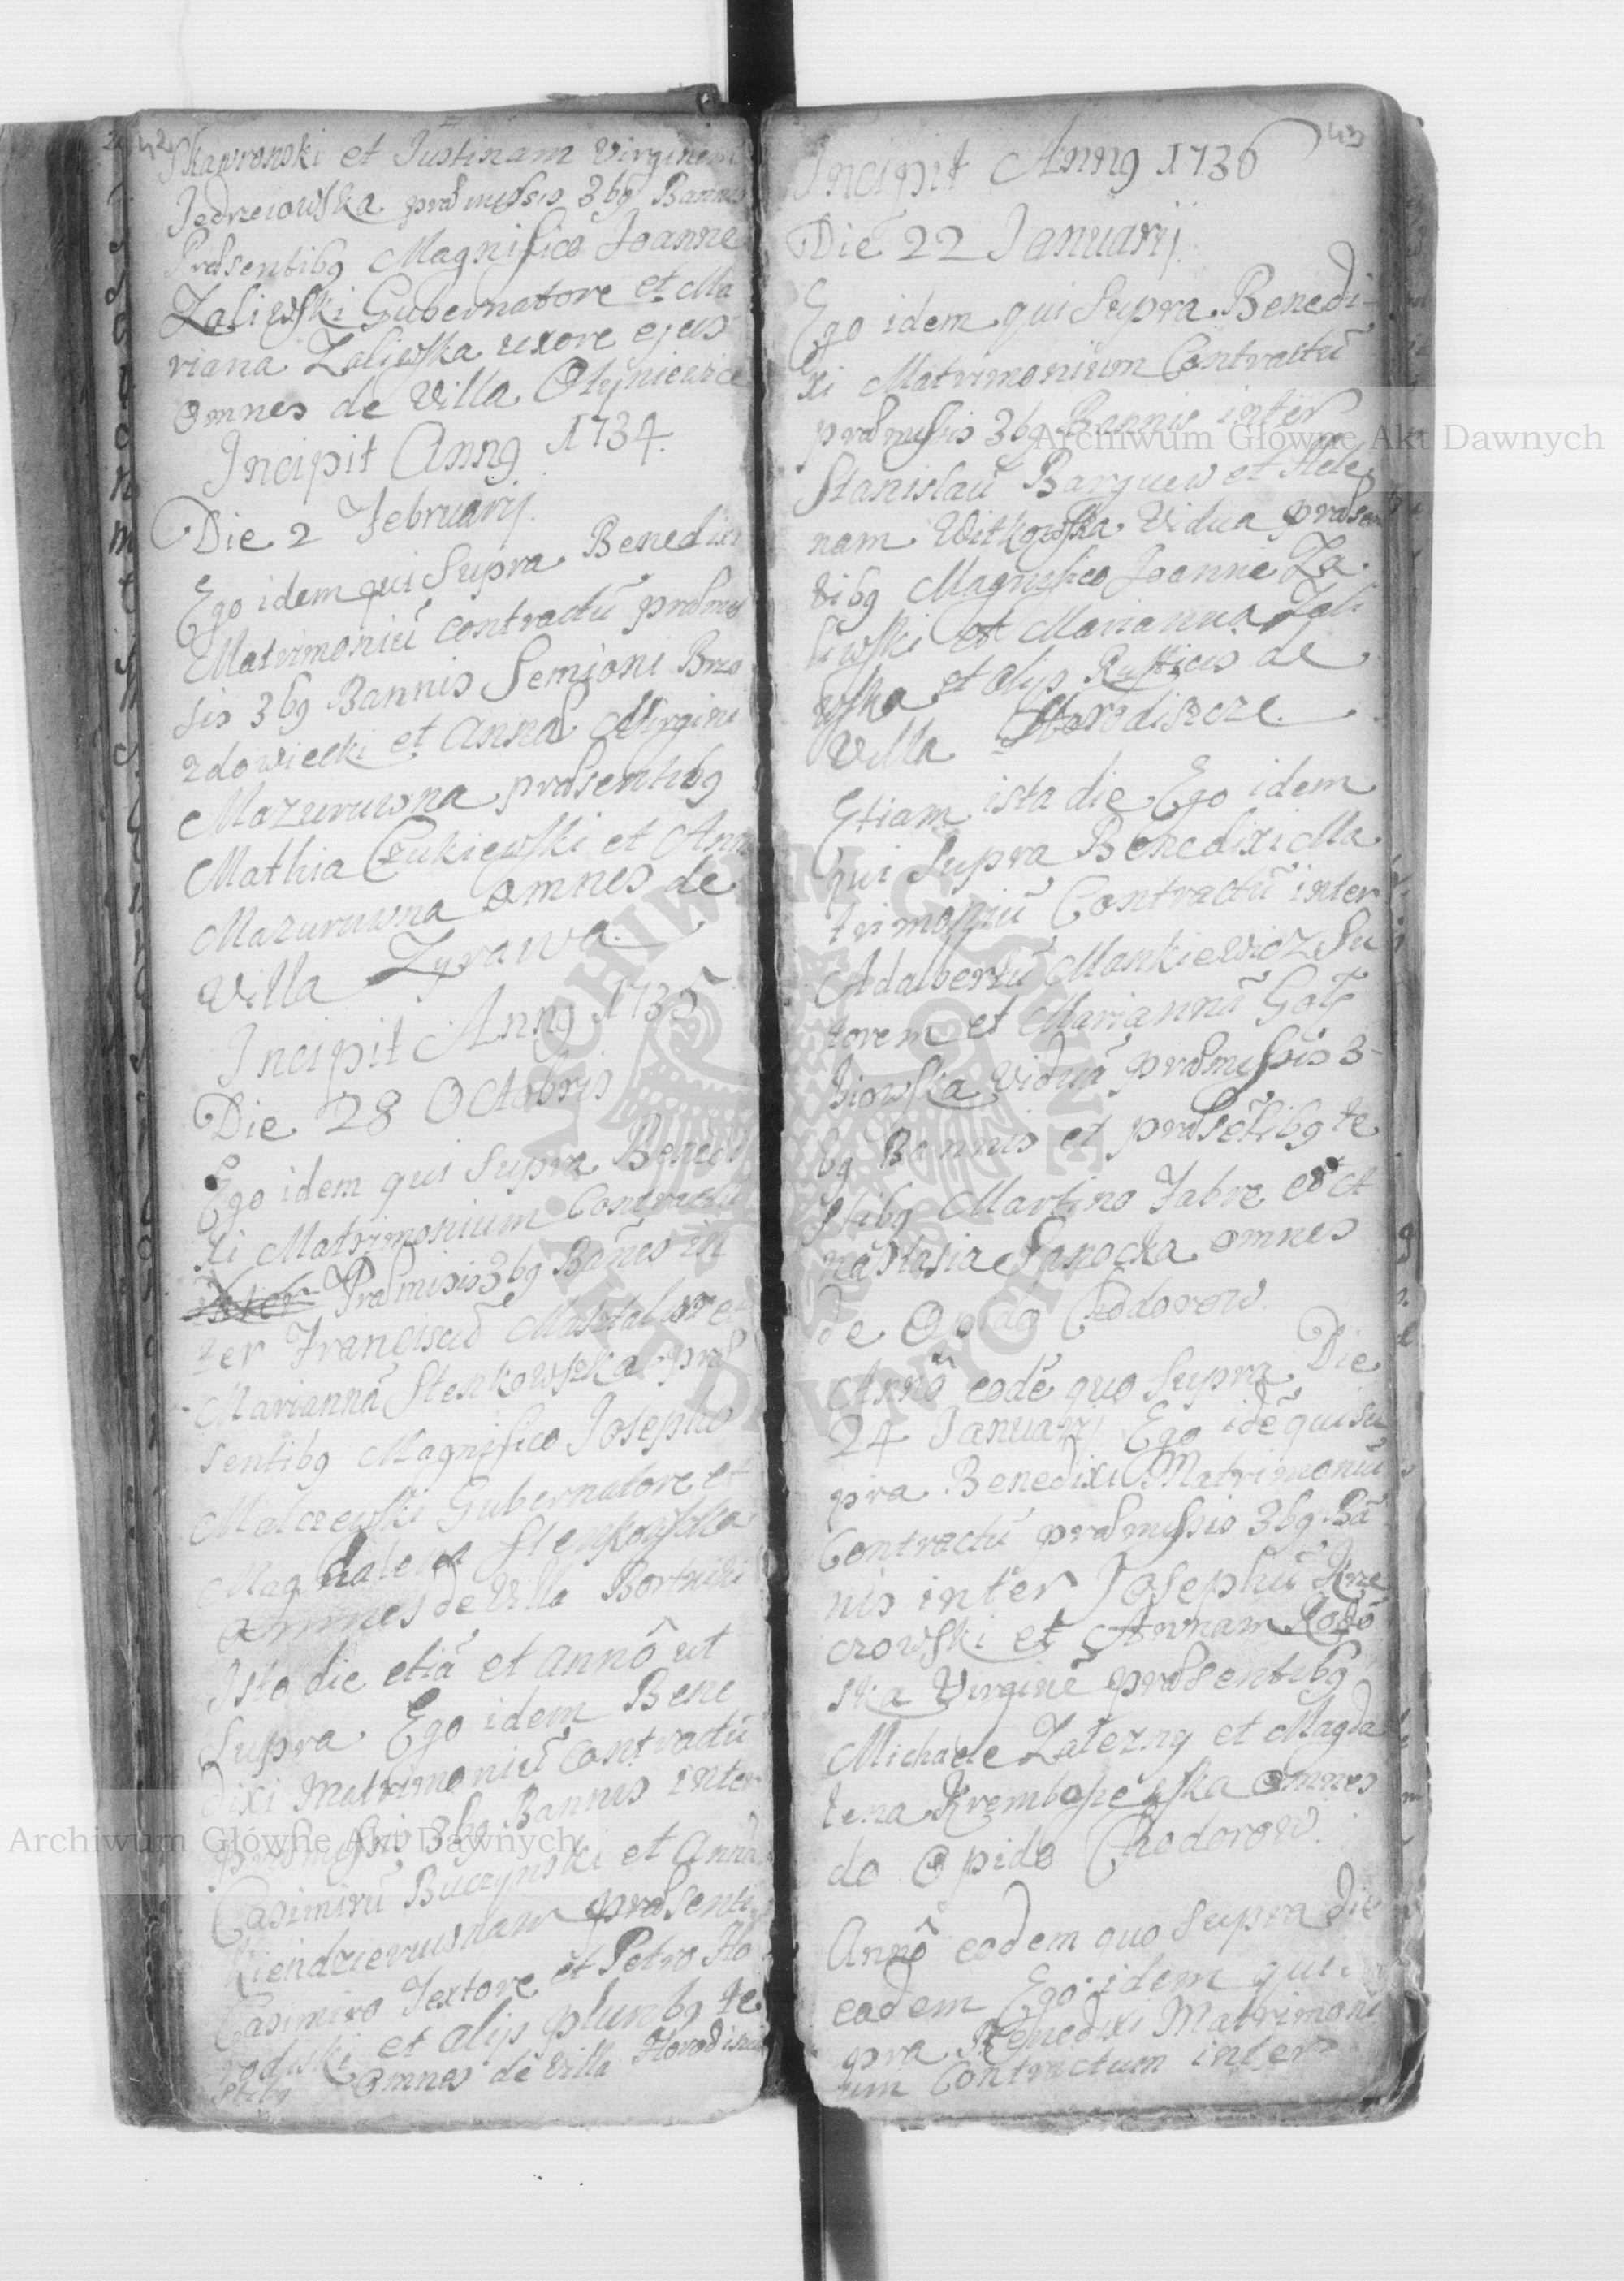 42
Skawronski et Justinam Virginem
Jedrzeiowska præmissis 3bꝰ Bannis
Præsentibꝰ Magnifico Joanne
Zaliwski Gubernatore et Ma
riana Zaliwska uxore ejus
omnes de Villa Otyniewice
Incipit Annꝰ 1734.
Die 2 Februarij.
Ego idem qui Supra Benedixi
Matrimoniū contractū præmis
sis 3bꝰ Bannis Semioni Brzo
zdowiecki et Annæ Virgini
Mazuruwna præsentibꝰ
Mathia Czukiewski et Ann
Mazuruwna omnes de
Villa Zyrawa.
Incipit Annꝰ 1735
Die 28 Octobris
Ego idem qui Supra Benedi
xi Matrimonium Contractū
Præmisis 3bꝰ Banis in
ter Franciscū Mastalerz et
Mariannā Stenkowska præ
sentibꝰ Magnifico Josepho
Malczewski Gubernatore et
Magdalena Stenkowska
omnes de Villa Bortniki
Isto die etiā et annô ut
Supra Ego idem Bene
dixi Matrimoniū Contractū
præmissis 3bꝰ Bannis inter
Casimirū Buczynski et Annā
præsenti
Casimiro Textore et Petro Ho
rodyski et alijs pluribꝰ te
stibꝰ omnes de Villa Horodiszcze
43
Incipit Annꝰ 1736
Die 22 Januarij.
Ego idem qui Supra Benedi-
xi Matrimonium Contractū
præmissis 3bꝰ Bannis inter
Stanislaū Barguew et Hele
nam Witkowska Vidua præsen
tibꝰ Magnifico Joanne Za
liwski et Marianna Zali
wska et alijs Rusticis de
Villa Horodiszcze.
Etiam ista die Ego idem
qui Supra Benedixi Ma
trimoniū Contractū inter
Adalbertū Mankiewicz Su
torem et Mariannā Goł
biowska viduā præmissis 3-
bꝰ Bannis et præsētibꝰ te
stibꝰ Martino Fabre et A
nastasia Sanocka omnes
de Opido Chodorow.
Annô eodē quo Supra Die
24 Januarij Ego idē qui su
pra Benedixi Matrimoniū
Contractū præmissis 3bꝰ Bā
nis inter Josephū Krze
czowski et Annam Kodō
ska Virginē præsentibꝰ
Michaele Zalezny et Magda
lena omnes
do Opido Chodorow.
Annô eodem quo Supra die
eadem Ego idem qui
pra Benedixi Matrimoni
um Contractum inter
Archiwum Główne Akt Dawnych
Archiwum Główne Akt Dawnych
ARCHIWUM GŁÓWNE AKT DAWNYCH